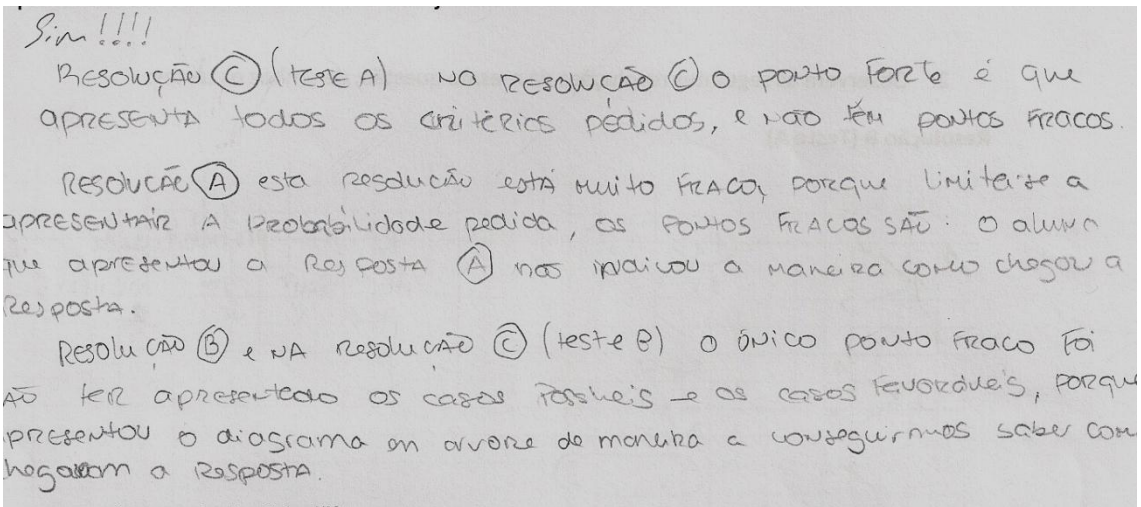 Sim!!!!
Resolução C (teste A) No Resolução C o ponto forte é que
apresenta todos os critérios pedidos, e não têm pontos fracos.
Resolução A esta resolução está muito fraco, porque limita-se a
apresentair a probabilidade pedida, os pontos fracos são: o aluno
que apresentou a Resposta A não indicou a maneira como chegou a
Resposta.
Resolução B e na resolução C (teste B) o único ponto fraco foi
ão ter apresentado os casos possíveis e os casos favoráveis, porque
presentou o diagrama em arvore de maneira a conseguirmos saber com
hegaram a Resposta.